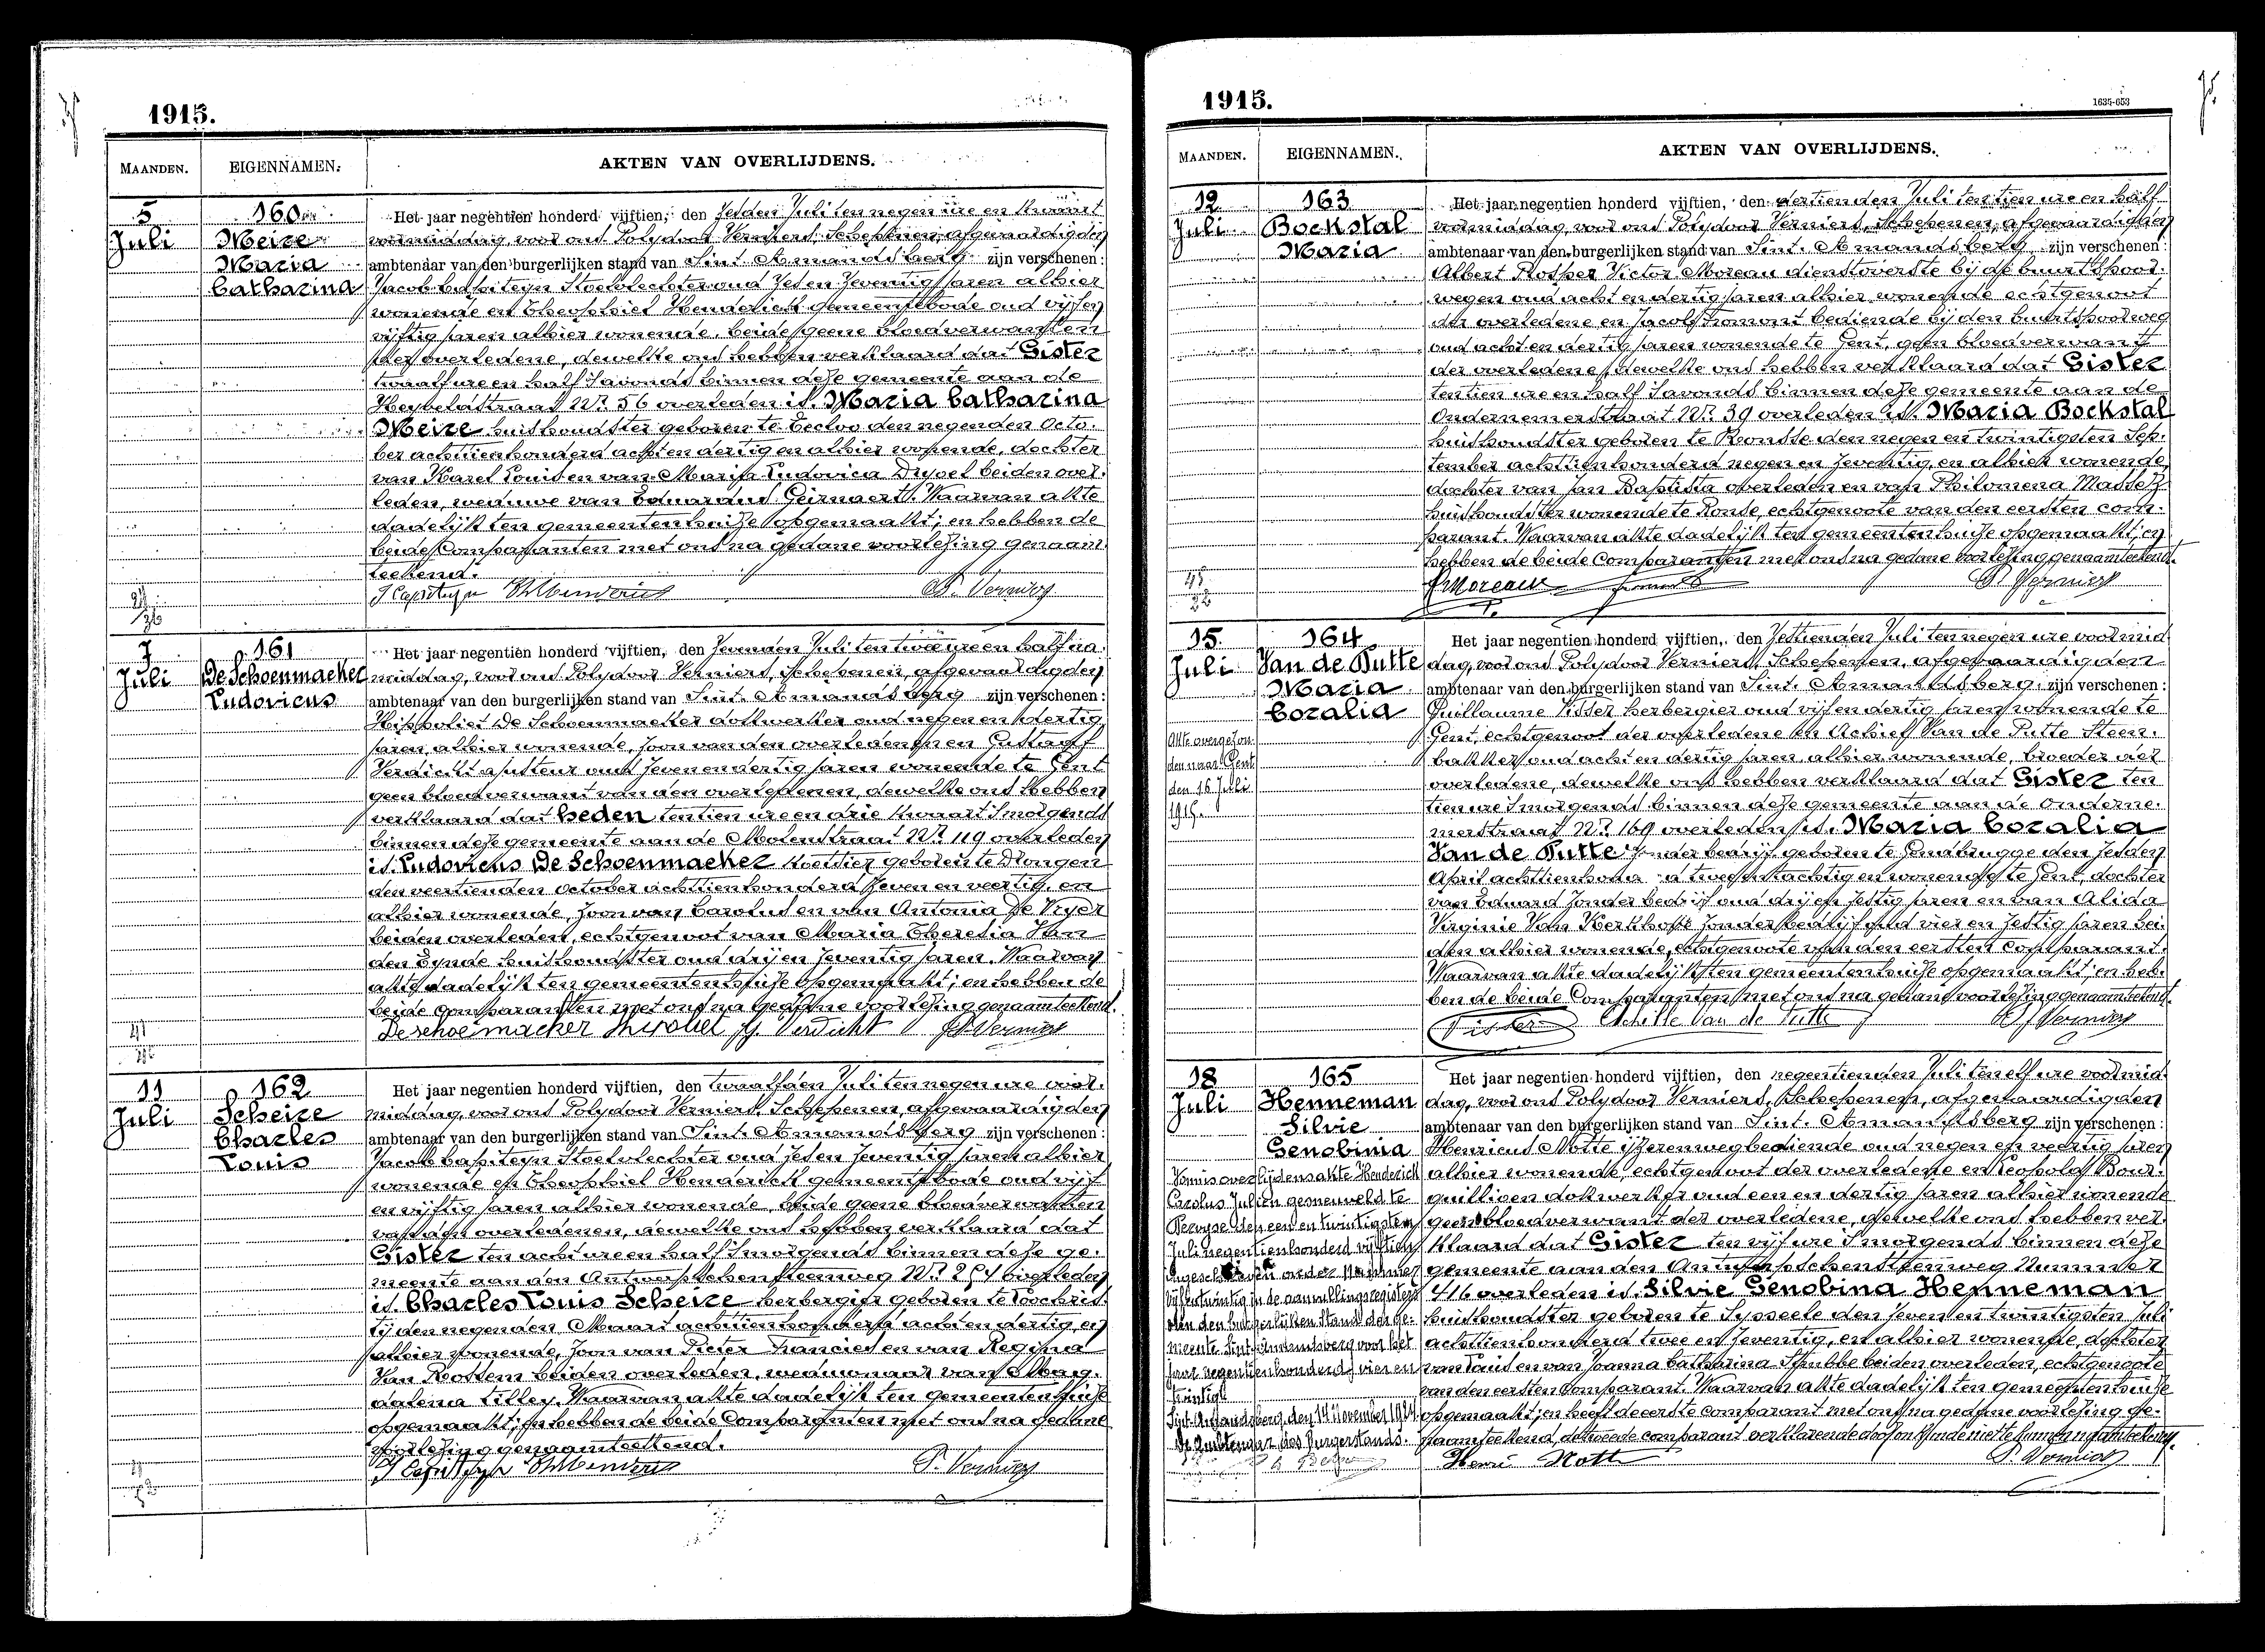 1915.
MAANDEN.
EIGENNAMEN.
AKTEN VAN OVERLIJDENS.
5
Juli
160
Meire
Maria
Catharina
Het jaar negentien honderd vijftien, den zesden Juli ten negen ure en kwaart
voormiddag, voor ons Polydoor Verniers, Schepenen, afgevaardigden
ambtenaar van den burgerlijken stand van Sint. Amandsberg zijn verschenen:
Jacob Capiteyn Stoelvlechter oud zes en zeventig jaren alhier
wonende en Theophiel Henderick gemeentebode oud vijf en
vijftig jaren alhier wonende, beide geene bloedverwanten
der overledene, dewelke ons hebben verklaard dat Gister
twaalf ure en half 's avonds binnen deze gemeente aan de
Heyveldstraat Nr. 56 overleden is. Maria Catharina
Meire huishoudster geboren te Eecloo den negenden Octo-
ber achttienhonderd acht en dertig en alhier wonende, dochter
van Karel Louis en van Marija Ludovica Dypel beiden over-
leden, weduwe van Eduarand Geirnaert. Waarvan akte
dadelijk ten gemeentenhuize opgemaakt; en hebben de
beide Comparanten met ons na gedane voorlezing genaam-
teekend.
J Capiteyn ThHenderick P. Verniers
7
Juli
161
De Schoenmaeker
Ludovicus
Het jaar negentien honderd vijftien, den zevenden Juli ten twee ure en half na-
middag, voor ons Polydoor Verniers, Schepenen, afgevaardigden
ambtenaar van den burgerlijken stand van Sint. Amandsberg zijn verschenen:
Hippoliet De Schoenmaeker dokwerker oud negen en dertig
jaren, alhier wonende, zoon van den overledenen en Gustaaf
Verdickt ajusteur oud zeven en dertig jaren wonende te Gent
geen bloedverwant van den overledenen, dewelke ons hebben
verklaard dat heden ten tien ure en drie kwaart 's morgends
binnen deze gemeente aan de Molenstraat Nr. 119 overleden
is. Ludovicus De Schoenmaeker koetsier geboren te Drongen
den veertienden October achttienhonderd zeven en veertig, en
alhier wonende, zoon van Carolus en van Antonia De Vryer
beiden overleden, echtgenoot van Maria Theresia Van
den Eynde huishoudster oud drij en zeventig jaren. Waarvan
akte dadelijk ten gemeentenhuize opgemaakt; en hebben de
beide Comparanten met ons na gedane voorlezing genaamteekend.
Deschoemacher G. Verdickt P. Verniers
11
Juli
162
Scheire
Charles
Louis
Het jaar negentien honderd vijftien, den twaalfden Juli ten negen ure voor-
middag, voor ons Polydoor Verniers, Schepenen, afgevaardigden
ambtenaar van den burgerlijken stand van Sint. Amandsberg zijn verschenen:
Jacob Capiteyn Stoelvlechter oud zes en zeventig jaren alhier
wonende en Theophiel Henderick gemeentebode oud vijf
en vijftig jaren alhier wonende, beide geene bloedverwanten
van den overledenen, dewelke ons hebben verklaard dat
Gister ten acht ure en half 's morgends binnen deze ge-
meente aan den Antwerpschensteenweg Nr. overleden
is. Charles Louis Scheire herbergier geboren te Loochris-
tij den negenden Maart achttienhonderd acht en dertig en
alhier wonende, zoon van Pieter Francies en van Regina
Van Rossem beiden overleden, weduwnaar van Mag-
dalena Lilley. Waarvan akte dadelijk ten gemeentenhuize
opgemaakt; en hebben de beide Comparanten met ons na gedane
voorlezing genaamteekend.
J Capiteyn ThHenderick P. Verniers
1915.
1635-653
MAANDEN.
EIGENNAMEN.
AKTEN VAN OVERLIJDENS.
12
Juli
163
Bockstal
Maria
Het jaar negentien honderd vijftien, den dertienden Juli ten tien ure en half
voormiddag voor ons Polydoor Verniers, Schepenen, afgevaardigden
ambtenaar van den burgerlijken stand van Sint. Amandsberg zijn verschenen:
Albert Prosper Victor Moreau dienstoverste bij de buurtspoor-
wegen oud acht en dertig jaren alhier wonende echtgenoot
der overledene en Jacob Fromont bediende bij den buurtspoorweg
oud acht en dertig jaren wonende te Gent, geen bloedverwant
der overledene, dewelke ons hebben verklaard dat Gister
ten tien ure en half 's avonds binnen deze gemeente aan de
Ondernemerstraat Nr. 39 overleden is. Maria Bockstal
huishoudster geboren te Ronsse den negen en twintigsten Sep-
tember achttienhonderd negen en zeventig, en alhier wonende,
dochter van Jan Baptista overleden en van Philomena Massez
huishoudster wonende te Ronse, echtgenoote van den eersten com-
parant. Waarvan akte dadelijk ten gemeentenhuize opgemaakt; en
hebben de beide Comparanten met ons na gedane voorlezing genaamteekend.
Moreau P. Verniers
15
Juli
164
Van de Putte
Maria
Coralia
Akte overgezon-
den naar Gent
den 16 Juli
1915.
Het jaar negentien honderd vijftien, den zestienden Juli ten negen ure voormid-
dag, voor ons Polydoor Verniers, Schepenen, afgevaardigden
ambtenaar van den burgerlijken stand van Sint. Amandsberg, zijn verschenen:
Guillaume Visser herbergier oud vijf en dertig jaren wonende te
Gent, echtgenoot der overledene en Achief Van de Putte Steen-
bakker oud acht en dertig jaren alhier wonende, broeder der
overledene, dewelke ons hebben verklaard dat Gister ten
tien ure 's morgends binnen deze gemeente aan de Onderne-
merstraat Nr. 169 overleden is. Maria Coralia
Van de Putte zonder bedrijf geboren te Gendbrugge den zesden
April achttienhonderd twee en tachtig en wonende te Gent, dochter
van Eduard zonder bedrijf oud drij en zestig jaren en van Alida
Virginie Van Kerkhove zonder bedrijf oud vier en zestig jaren bei-
den alhier wonende, echtgenoote van den eersten Comparant.
Waarvan akte dadelijk ten gemeentenhuize opgemaakt; en heb-
ben de beide Comparanten met ons na gedane voorlezing genaamteekend.
Visser Achille Van de Putte P. Verniers
18
Juli
165
Henneman
Silvie
Genobinia
Kennis overlijdensakte Henderick
Carolus Julien gesneuveld te
Pervyse den een en twintigsten
Juli negentienhonderd vijftien
ingeschreven onder nummer
vijf en twintig in de aanvullingsregisters
van den burgerlijken stand der ge-
meente Sint Amandsberg voor het
jaar negentienhonderd vier en
twintig
Sint Amandsberg, den 14 November 1924.
De Ambtenaar des Burgerstands.
Het jaar negentien honderd vijftien, den negentienden Juli ten elf ure voormid-
dag, voor ons Polydoor Verniers, Schepenen, afgevaardigden
ambtenaar van den burgerlijken stand van Sint. Amandsberg zijn verschenen:
Henricus Motte ijzerenwegbediende oud negen en veertig jaren
alhier wonende, echtgenoot der overledene en Leopold Bour-
quillioen dokwerker oud een en dertig jaren alhier wonende
geen bloedverwant der overledene, dewelke ons hebben ver-
klaard dat Gister ten vijf ure 's morgends binnen deze
gemeente aan den Antwerpschensteenweg Nummer
416 overleden is. Silvie Genobina Henneman
huishoudster geboren te Sysseele den zeven en twintigsten Juli
achttienhonderd twee en zeventig, en alhier wonende, dochter
van Louis en van Joanna Catharina Stubbe beiden overleden, echtgenoote
van den eersten Comparant. Waarvan akte dadelijk ten gemeentenhuize
opgemaakt; en heeft de eerste comparant met ons na gedane voorlezing ge-
naamteekend, de tweede comparant verklarende door onkunde niet te kunnen naamteekenen.
Henri Mott P. Verniers